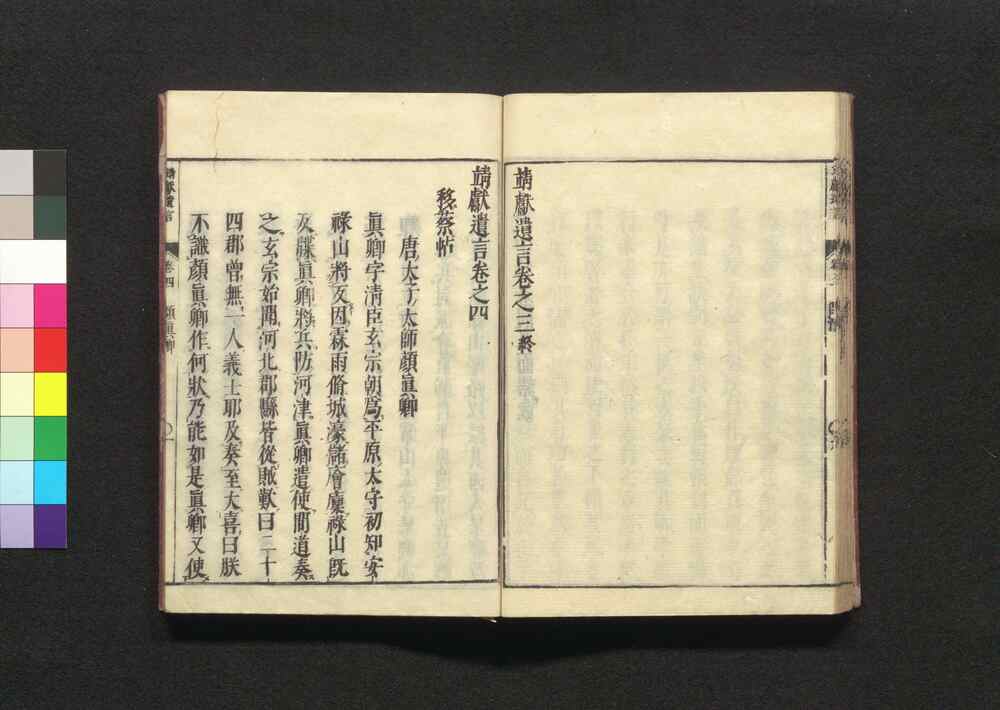 靖獻遺言卷之三終
靖獻遺言卷之四
移蔡帖
唐太子太師顏眞卿
眞卿字清臣玄宗朝爲平原太守初知安
祿山將反因霖雨脩城濠儲會廩祿山既
反牒眞卿將兵防河津眞卿遣使間道奏
之玄宗始聞河北郡縣皆從賊歎曰二十
四郡曾無一人義士耶及奏至大喜曰朕
不識顏眞卿作何狀乃能如是眞卿又使
靖獻遺言
卷四
顏眞卿